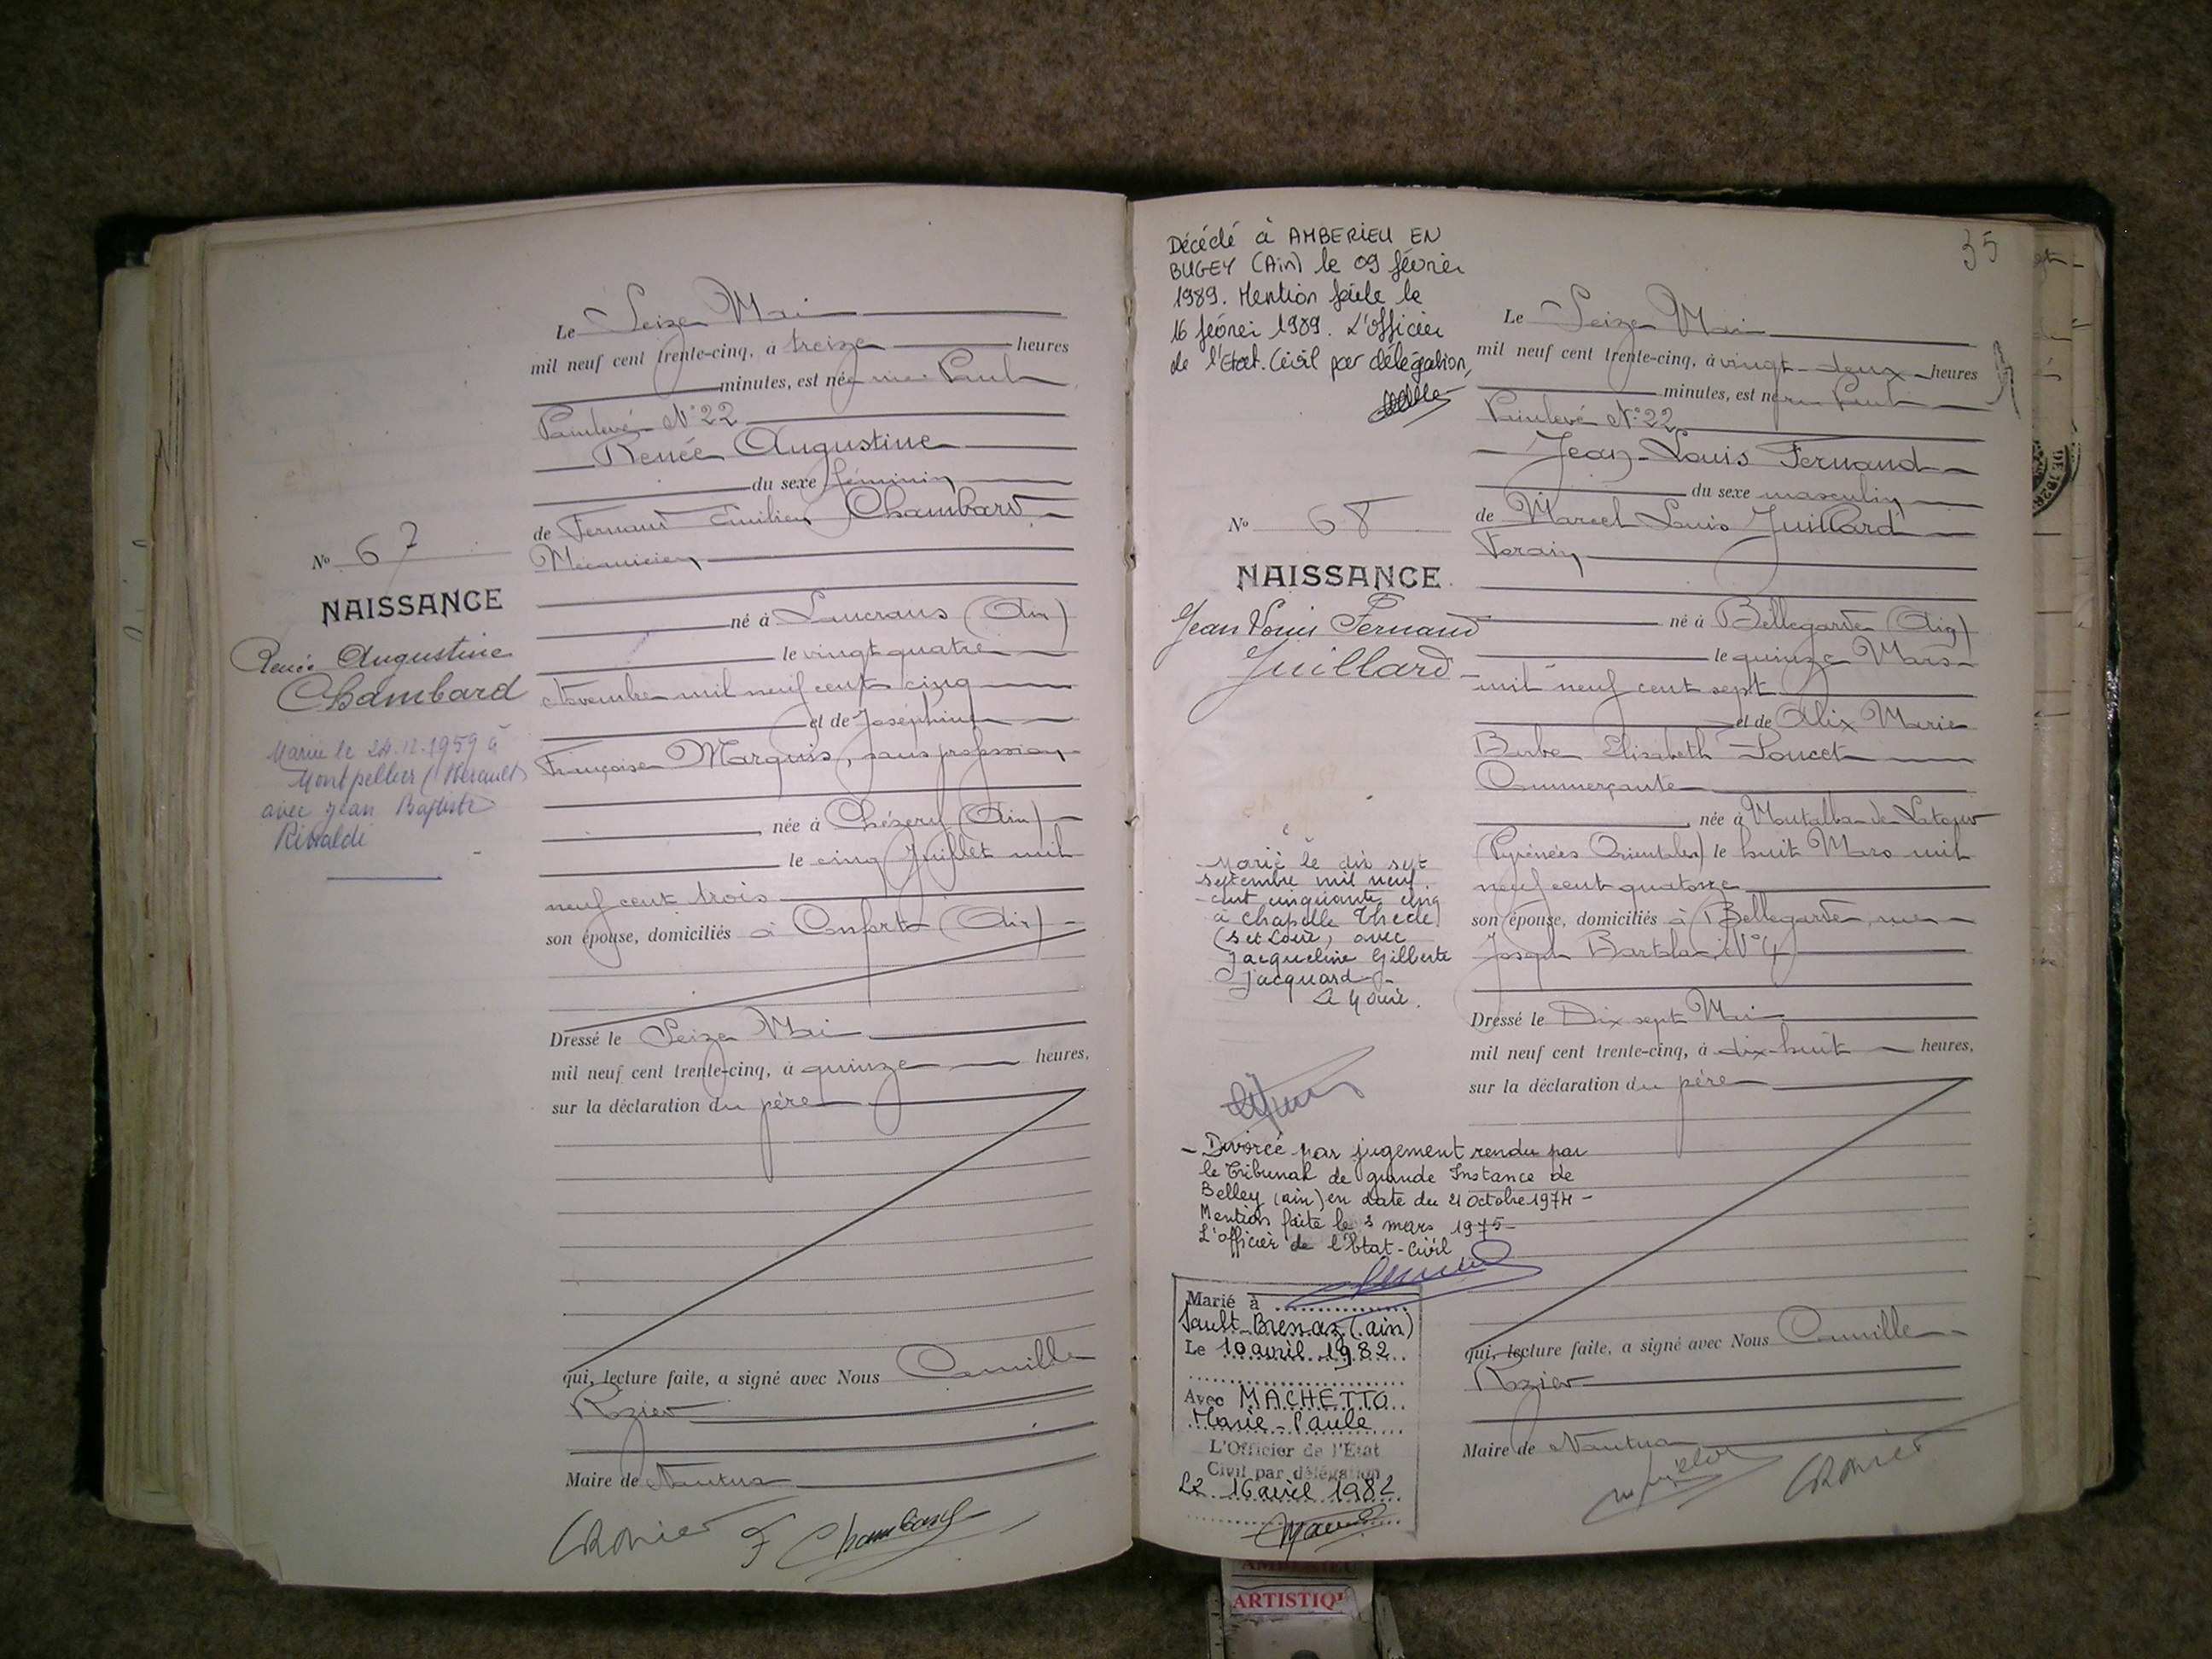 Le Seize Mai
mil neuf cent trente-cinq, à treize heures
minutes, est née rue Paul
Painlevé N° 22
Renée Augustine
du sexe féminin
de Fernand Emilien Chambard
Mécanicien
No 67
NAISSANCE
Renée Augustine
Chambard
Mariée le 24.12.1959 à
Montpellier (Hérault)
avec Jean Baptiste
né à Lancrans (Ain)
le vingt quatre
Novembre mil neuf cent cinq
et de Joséphine
Françoise Marquis, sans profession
née à Chézery (Ain)
le cinq Juillet mil
neuf cent trois
son épouse, domiciliés à Confort (Ain)
Dressé le Seize Mai
mil neuf cent trente-cinq, à quinze heures,
sur la déclaration du père
qui, lecture faite, a signé avec Nous Camille
Rozier
Maire de Nantua
CRozier F Chambard
35
Décédé à AMBERIEU EN
BUGEY (Ain) le 09 février
1989. Mention faite le
16 février 1989. L'officier
de l'Etat-Civil par délégation,
No 68
NAISSANCE
Jean Louis Fernand
Juillard
Marié le dix sept
septembre mil neuf
cent cinquante cinq
à Chapelle Thècle
(S et Loire), avec
Jacqueline Gilberte
Jacquard
- Divorcé par jugement rendu par
le Tribunal de grande Instance de
Belley (ain) en date du 21 Octobre 1974 -
Mention faite le 3 mars 1975-
L'officier de l'Etat-Civil
Marié à
Sault-Brenaz (ain)
Le 10 avril 1982
Avec MACHETTO
Marie-Paule
L'Officier de l'Etat
Civil par délégation
Le 16 avril 1982
Le Seize Mai
mil neuf cent trente-cinq, à vingt-deux heures
minutes, est né rue Paul
Painlevé N° 22
Jean-Louis Fernand
du sexe masculin
de Marcel Louis Juillard
Forain
né à Bellegarde (Ain)
le quinze Mars
mil neuf cent sept
et de Alix Marie
Barbe Elisabeth Poncet
Commerçante
née à Montalba-de-Latour
(Pyrénées Orientales) le huit Mars mil
neuf cent quatorze
son épouse, domiciliés à Bellegarde, rue
Joseph Bertola, N° 4
Dressé le Dix sept Mai
mil neuf cent trente-cinq, à dix-huit heures,
sur la déclaration du père
qui, lecture faite, a signé avec Nous Camille
Rozier
Maire de Nantua
CRozier
AMBERIEU
ARTISTIQ